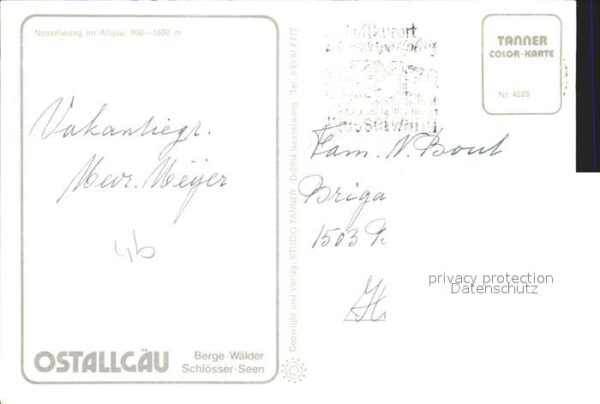 Nesselwang im Allgäu, 900—1600 m
Vakantiegr.
Mevr. Meijer
4b
OSTALLGÄU
Berge-Wälder
Schlösser-Seen
Copyright und Verlag: STUDIO TANNER, D-8964 Nesselwang, Tel.
Luftkurort
Nesselwang
TANNER
COLOR-KARTE
Nr. 4228
Fam. N. Bout
Briga
1503
privacy protection
Datenschutz